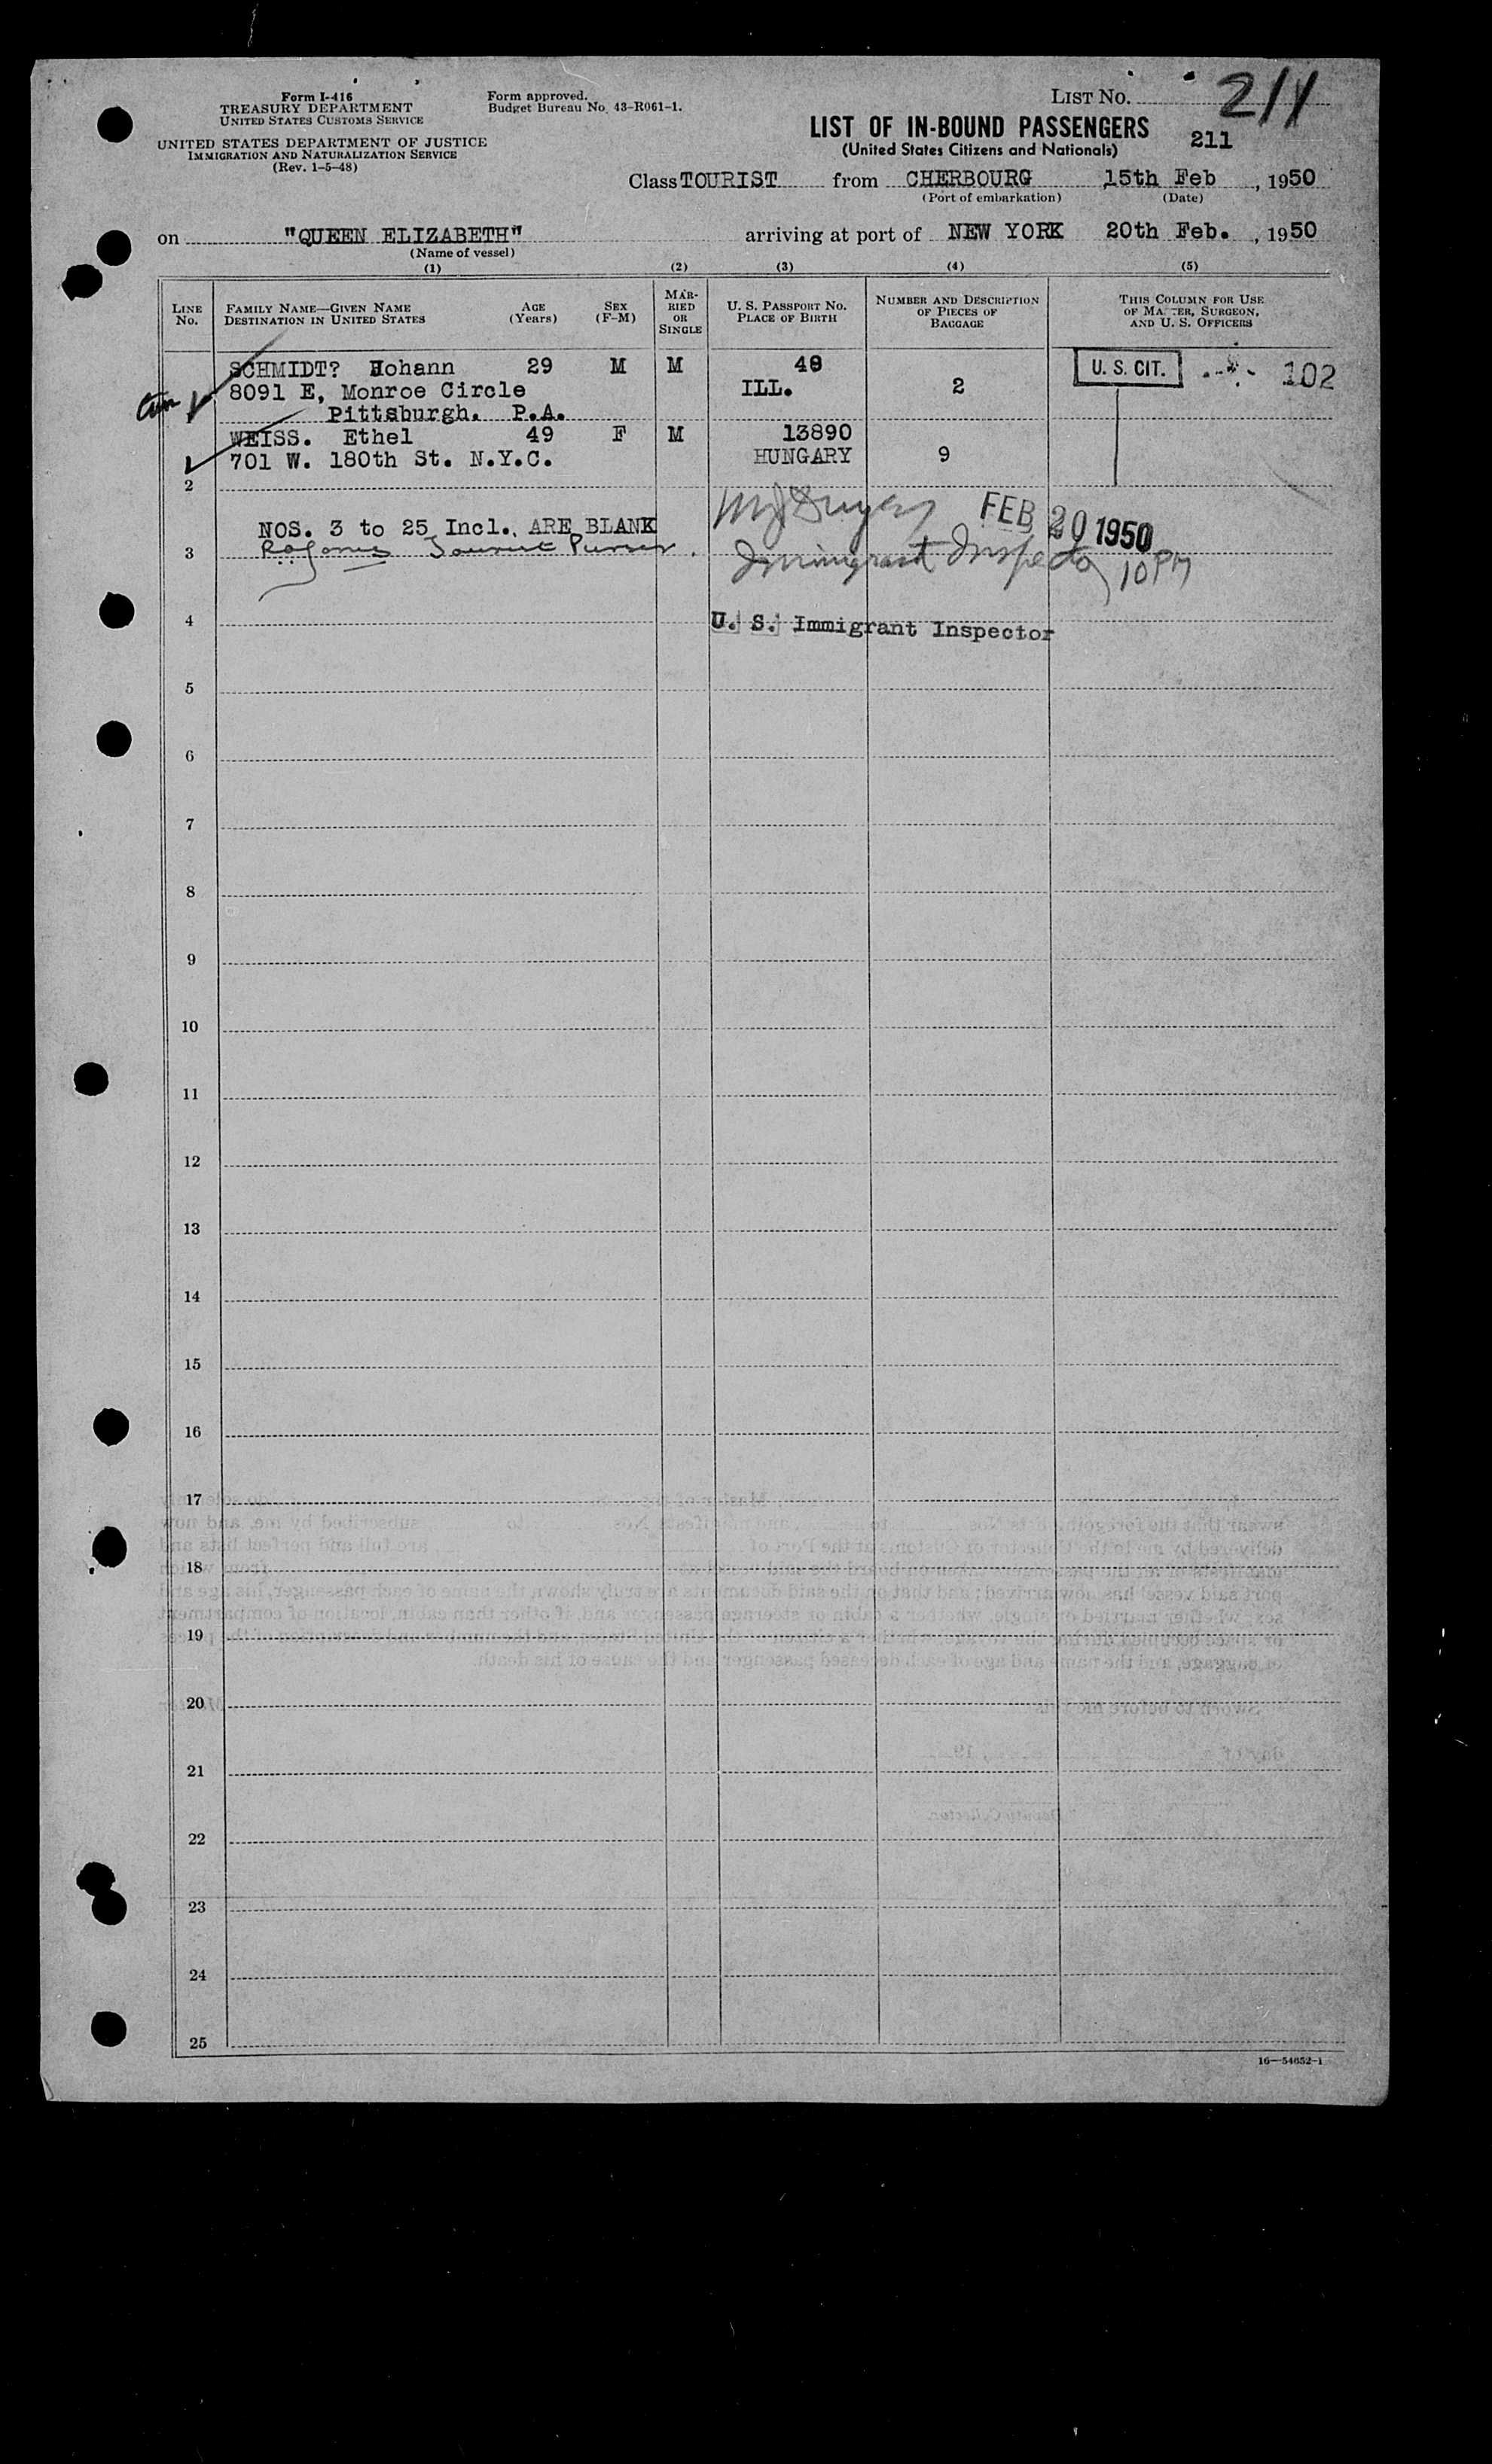 Form I-416
TREASURY DEPARTMENT
UNITED STATES CUSTOMS SERVICE
UNITED STATES DEPARTMENT OF JUSTICE
IMMIGRATION AND NATURALIZATION SERVICE
(Rev. 1-5-48)
Form approved.
Budget Bureau No. 43-R061-1.
LIST No. 211
LIST OF IN-BOUND PASSENGERS
(United States Citizens and Nationals)
211
Class TOURIST from CHERBOURG 15th Feb, 1950
(Port of embarkation) (Date)
on "QUEEN ELIZABETH" arriving at port of NEW YORK 20th Feb., 1950
(Name of vessel)
(1) (2) (3) (4) (5)
LINE No.
FAMILY NAME—GIVEN NAME
DESTINATION IN UNITED STATES
AGE (Years)
SEX (F-M)
MARRIED OR SINGLE
U. S. PASSPORT No.
PLACE OF BIRTH
NUMBER AND DESCRIPTION OF PIECES OF BAGGAGE
THIS COLUMN FOR USE OF MASTER, SURGEON, AND U. S. OFFICERS
SCHMIDT? Hohann 29 M M 48 U. S. CIT. 102
8091 E, Monroe Circle ILL. 2
Pittsburgh. P.A.
WEISS. Ethel 49 F M 13890
701 W. 180th St. N.Y.C. HUNGARY 9
2
FEB 20 1950
NOS. 3 to 25 Incl., ARE BLANK
3 Tourist Purser.
Immigrant Inspector 10 PM
4 U. S. Immigrant Inspector
5
6
7
8
9
10
11
12
13
14
15
16
17
18
19
20
21
22
23
24
25
16—54652-1